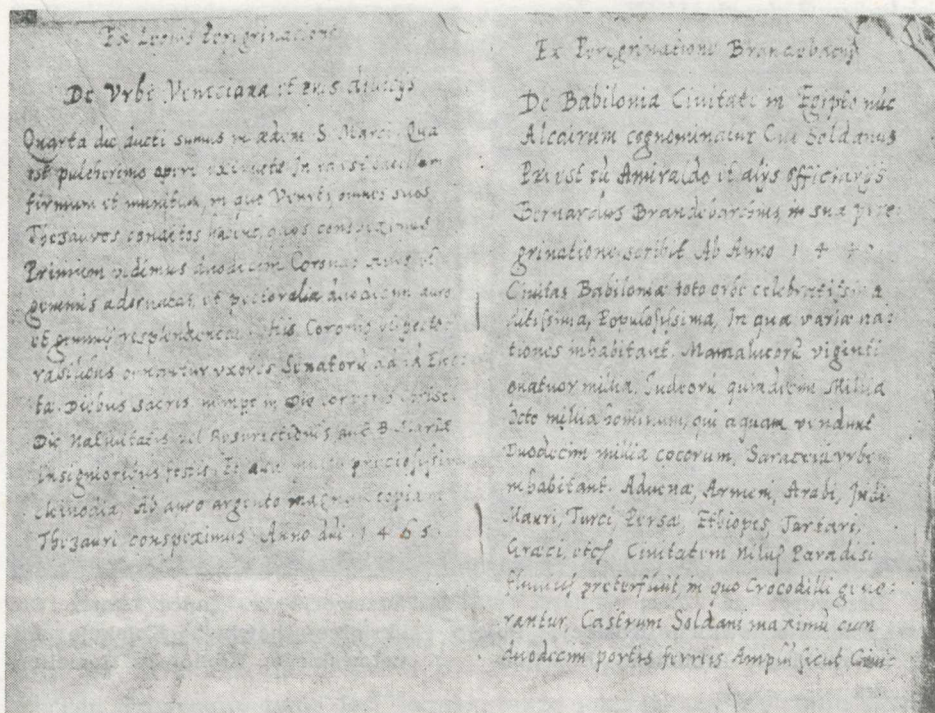 Ex Leonis Peregrinatione
De Vrbe Veneciana et eius diuicijs
Quarta die ducti sumus in ædem S. Marci. Qua
est pulcherimo opere extructa. In ea est sacellum
firmum et munitum, in quo Veneti omnes suos
Thezauros conditos habent, quos conspeximus
Primum vidimus duodecim Coronas auro et
gemmis adornatas, et pectoralia duodecim auro
et gemmis resplendentia, istis Coronis et pecto-
ralibus ornantur vxores Senatorū ad id
Diebus sacris nempe in Die Corporis Christi
Die Natiuitatis vel Resurectionis aut B. Mariæ
insignioribus festis. Et alia multa preciosissima
Clinodia, Ab auro argento magnam copiam
Thezauri conspeximus Anno dni. 1465.
Ex Peregrinatione Brandebachij
De Babilonia Ciuitate in Egipto nūc
Alcairum cognominatur Cui Soldanus
Præest cū Amiraldo et alijs officiarijs
Bernardus Brandebachius in sua pere-
grinatione scribit Ab Anno 14
Ciuitas Babilonia toto orbe celebratissima
Populosissima, In qua variæ na-
tiones inhabitant. Mamalucorū viginti
quatuor millia. Iudeorū quindecim Millia
Octo millia hominum, qui aquam vendunt
Duodecim millia cocorum, Saraceni vrbem
inhabitant. Aduenæ, Armeni, Arabi, Indi
Mauri, Turci, Persæ, Ethiopes, Tartari,
Græci, etc. Ciuitatem Nilus Paradisi
fluuius preterfluit, in quo Crocodilli gene-
rantur, Castrum Soldani maximū cum
duodecim portis ferreis Amplū sicut Ciui-